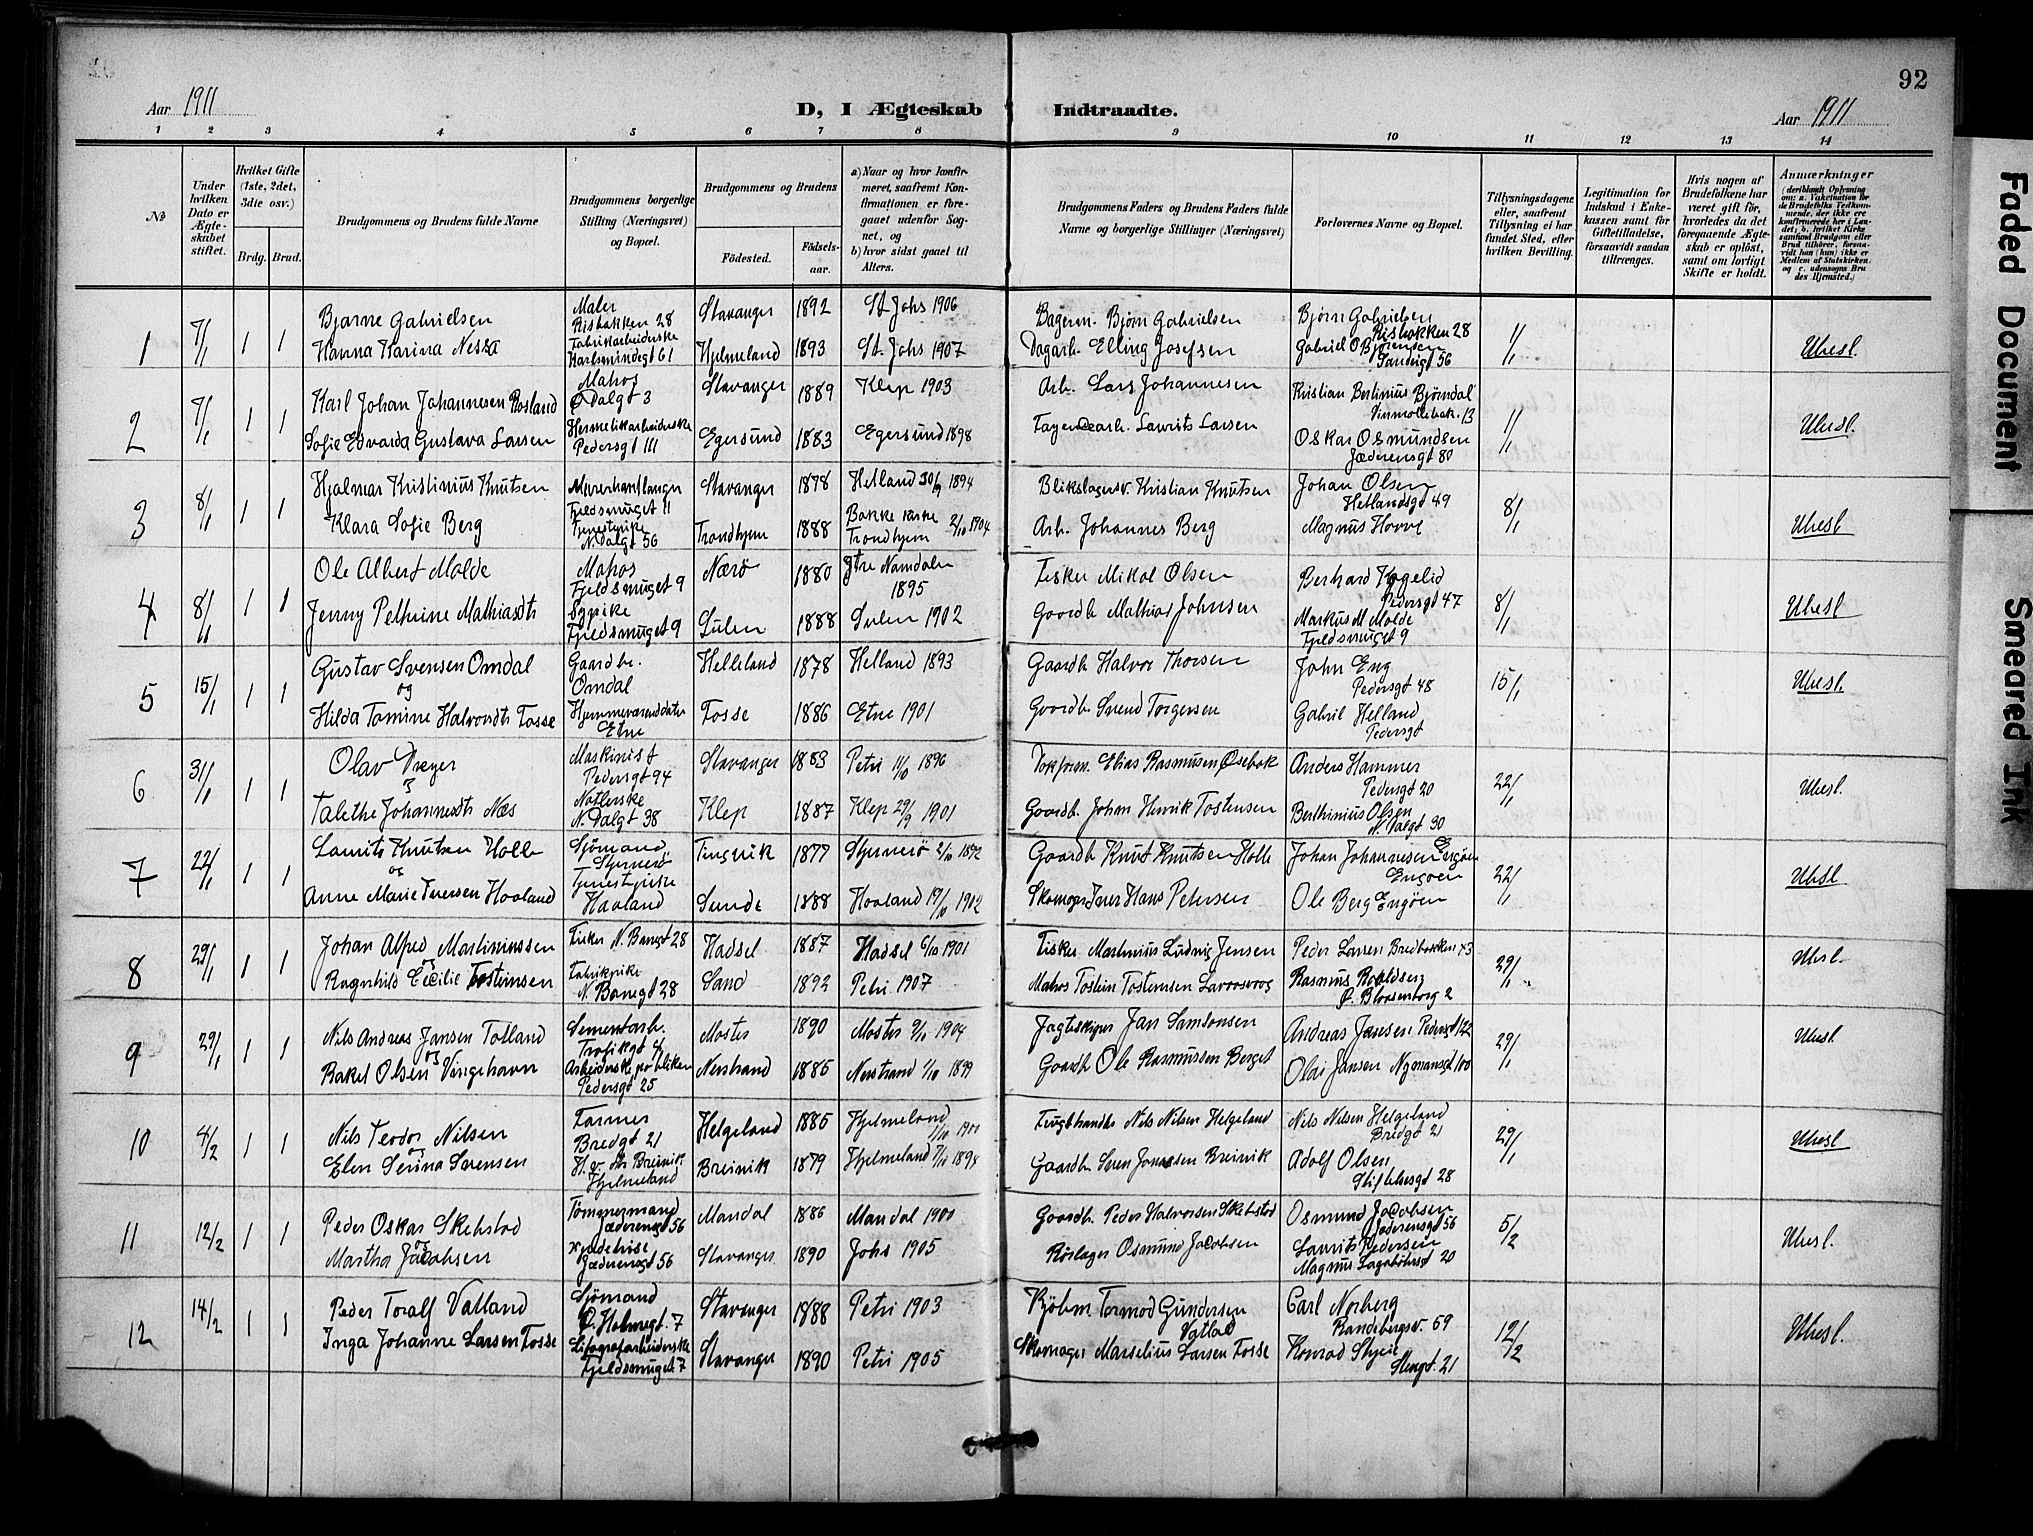 92
Aar 1911
D, I Ægteskab Indtraadte.
Aar 1911
1 2 3 4 5 6 7 8 9 10 11 12 13 14
No
Under hvilken Dato er Ægteskabet stiftet.
Hvilket Gifte (1ste, 2det, 3die osv.)
Brdg. Brud.
Brudgommens og Brudens fulde Navne
Brudgommens borgerlige Stilling (Næringsvei) og Bopæl.
Brudgommens og Brudens
Fødested.
Fødselsaar.
a) Naar og hvor konfirmeret, saafremt Konfirmationen er foregaaet udenfor Sognet, og
b) hvor sidst gaaet til Alters.
Brudgommens Faders og Brudens Faders fulde Navne og borgerlige Stillinger (Næringsvei)
Forlovernes Navne og Bopæl.
Tillysningsdagene eller, saafremt Tillysning ei har fundet Sted, efter hvilken Bevilling.
Legitimation for Indskud i Enkekassen samt for Giftetilladelse, forsaavidt saadan tiltrænges.
Hvis nogen af Brudefolkene har været gift før, hvorledes da det foregaaende Ægteskab er opløst, samt om lovligt Skifte er holdt.
Anmærkninger
1 7/1 1 1
Bjarne Gabrielsen Maler Risbakken 28 Stavanger 1892 St Johs 1906 Bagerm. Bjørn Gabrielsen Bjørn Gabrielsen Risbakken 28 1/1
Hanna Karina Nessa Fabrikarbeiderske Karlsmindegt 61 Hjelmeland 1893 St. Johs 1907 Dagarb. Elling Josefsen Gabriel O Bjørensen Sandsgt 56 Ubesl.
2 7/1 1 1
Karl Johan Johannesen Rosland Matros Ø Dalgt 3 Stavanger 1889 Klep 1903 Arb. Lars Johannesen Kristian Bertinius Bjørndal 13 1/1
Sofie Edvarda Gustava Larsen Hermetikarbeiderske Pedersgt 111 Egersund 1883 Egersund 1898 Laurits Larsen Oskar Osmundsen Jæderensgt 80 Ubesl.
3 8/1 1 1
Hjalmar Kristinius Knutsen Murerhandlanger Fjeldsmuget 11 Stavanger 1878 Hetland 30/9 1894 Blikslagersv. Kristian Knutsen Johan Olsen Hetlandsgt 49 8/1
Klara Sofie Berg Tjenestepike N. Dalgt 56 Trondhjem 1888 Bakke kirke Trondhjem 2/10 1904 Arb. Johannes Berg Magnus Hovve Ubesl
4 8/1 1 1
Ole Albert Molde Matros Fjeldsmuget 9 Nærø 1880 Ytre Namdalen 1895 Fisker Mikal Olsen Pedersgt 47 8/1
Jenny Pethrine Mathiasdtr Sypike Fjeldsmuget 9 Sulen 1888 Sulen 1902 Gaardb Mathias Johnsen Markus M Molde Fjeldsmuget 9 Ubesl
5 15/1 1 1
Gustav Svensen Omdal Gaardbr. Omdal Helleland 1878 Helland 1893 Gaardb Halvor Thorsen John Eng Pedersgt 48 15/1
og
Hilda Tomine Halvordtr Fosse Etne Fosse 1886 Etne 1901 Gaardb. Svend Torgersen Gabriel Helland Pedersgt Ubesl.
6 31/1 1 1
Olav Dreyer Maskinist Pedersgt 94 Stavanger 1883 Petri 11/10 1896 Elias Rasmussen Osebak Anders Hammer Pedersgt 20 22/1
og
Talethe Johannesdtr Næs Natlerske N. Dalgt 38 Klep 1887 Klep 29/9 1901 Gaardb. Johan Henrik Tostensen Berthinius Olsen N. Dalgt 30 Ubesl.
7 22/1 1 1
Laurits Knutsen Holle Sjømand Stjernerø Tingvik 1877 Stjernerø 2/10 1892 Gaardb Knut Knutsen Holle Johan Johannesen Engøen Engøen 22/1
og
Anne Marie Iversen Haaland Tjenestpike Haaland Sunde 1888 Haaland 19/10 1902 Skomager Iver Hans Petersen Ole Berg Engøen Ubesl
8 29/1 1 1
Johan Alfred Martiniussen Fisker N. Banegt 28 Hadsel 1887 Hadsel 6/10 1901 Fisker Martinius Ludvig Jensen Peder Larsen Bredbakken 43 29/1
og
Ragnhild Cecilie Tosteinsen Fabrikpike N. Banegt 28 Sand 1892 Petri 1907 Matros Tostein Tosteinsen Rasmus Roaldsen Ø. Blaasenborg 2 Ubesl.
9 29/1 1 1
Nils Andreas Jansen Totland Sementarb. Trafikgt 4 Moster 1890 Moster 9/10 1904 Jagtskipper Jan Samsonsen Andreas Jansen Pedersgt 122 29/1
og
Rakel Olsen Vingehavn Pedersgt 25 Nerstrand 1885 Nerstrand 1/10 1899 Gaardb Ole Rasmussen Berget Olai Jansen Nymansgt 100 Ubesl
10 4/2 1 1
Nils Teodor Nilsen Farmer Bredgt 21 Helgeland 1885 Hjelmeland 1/10 1900 Nils Nilsen Helgeland Nils Nilsen Helgeland Bredgt 21 29/1
og
Elen Serina Sørensen Breivik Hjelmeland Breivik 1879 Hjelmeland 7/10 1894 Gaardb Sven Jonassen Breivik Adolf Olsen Stiftelsesgt 28 Ubesl
11 12/2 1 1
Peder Oskar Skebstad Tømmermand Jæderensgt 56 Mandal 1886 Mandal 1900 Gaardb Peder Halvorsen Skebstad Osmund Jacobsen Jæderensgt 56 5/2
og
Martha Jacobsen Jæderensgt 56 Stavanger 1890 Johs 1905 Rørlager Osmund Jacobsen Laurits Pedersen Magnus Lagabøtersgt 20 Ubesl.
12 14/2 1 1
Peder Toralf Vatland Sjømand Ø. Holmegt. 7 Stavanger 1888 Petri 1903 Kjøbm Tormod Gundersen Vatlad Carl Norberg Randebergsv. 59 12/2
Inga Johanne Larsen Fosse Litografarbeiderske Fjeldsmuget 7 Stavanger 1890 Petri 1905 Skomager Marselius Larsen Fosse Konrad Skjeie Stengt. 21 Ubesl.
Faded Document
Smeared Ink